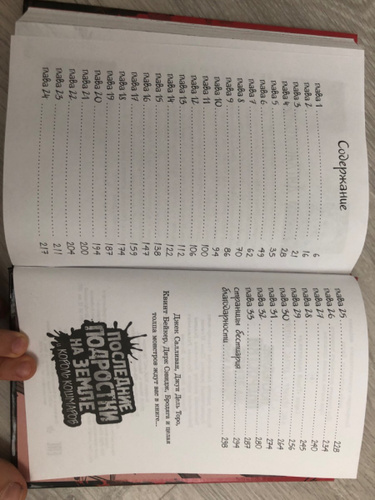 Содержание
глава 1 ........ 6
глава 2 ........ 16
глава 3 ........ 21
глава 4 ........ 28
глава 5 ........ 35
глава 6 ........ 49
глава 7 ........ 62
глава 8 ........ 70
глава 9 ........ 86
глава 10 ........ 94
глава 11 ........ 100
глава 12 ........ 106
глава 13 ........ 112
глава 14 ........ 122
глава 15 ........ 138
глава 16 ........ 147
глава 17 ........ 159
глава 18 ........ 174
глава 19 ........ 187
глава 20 ........ 194
глава 21 ........ 200
глава 22 ........ 204
глава 23 ........ 211
глава 24 ........ 217
глава 25 ........ 228
глава 26 ........ 234
глава 27 ........ 240
глава 28 ........ 245
глава 29 ........ 256
глава 30 ........ 264
глава 31 ........ 274
глава 32 ........ 280
глава 33 ........ 287
страницы бестиария ........ 294
благодарности ........ 298
Джек Салливан, Джун Дель Торо,
Квинт Бейкер, Дирк Сэвидж, Бродяга и целая
толпа монстров ждут вас в книге...
ПОСЛЕДНИЕ
ПОДРОСТКИ
НА ЗЕМЛЕ
КОРОЛЬ КОШМАРОВ